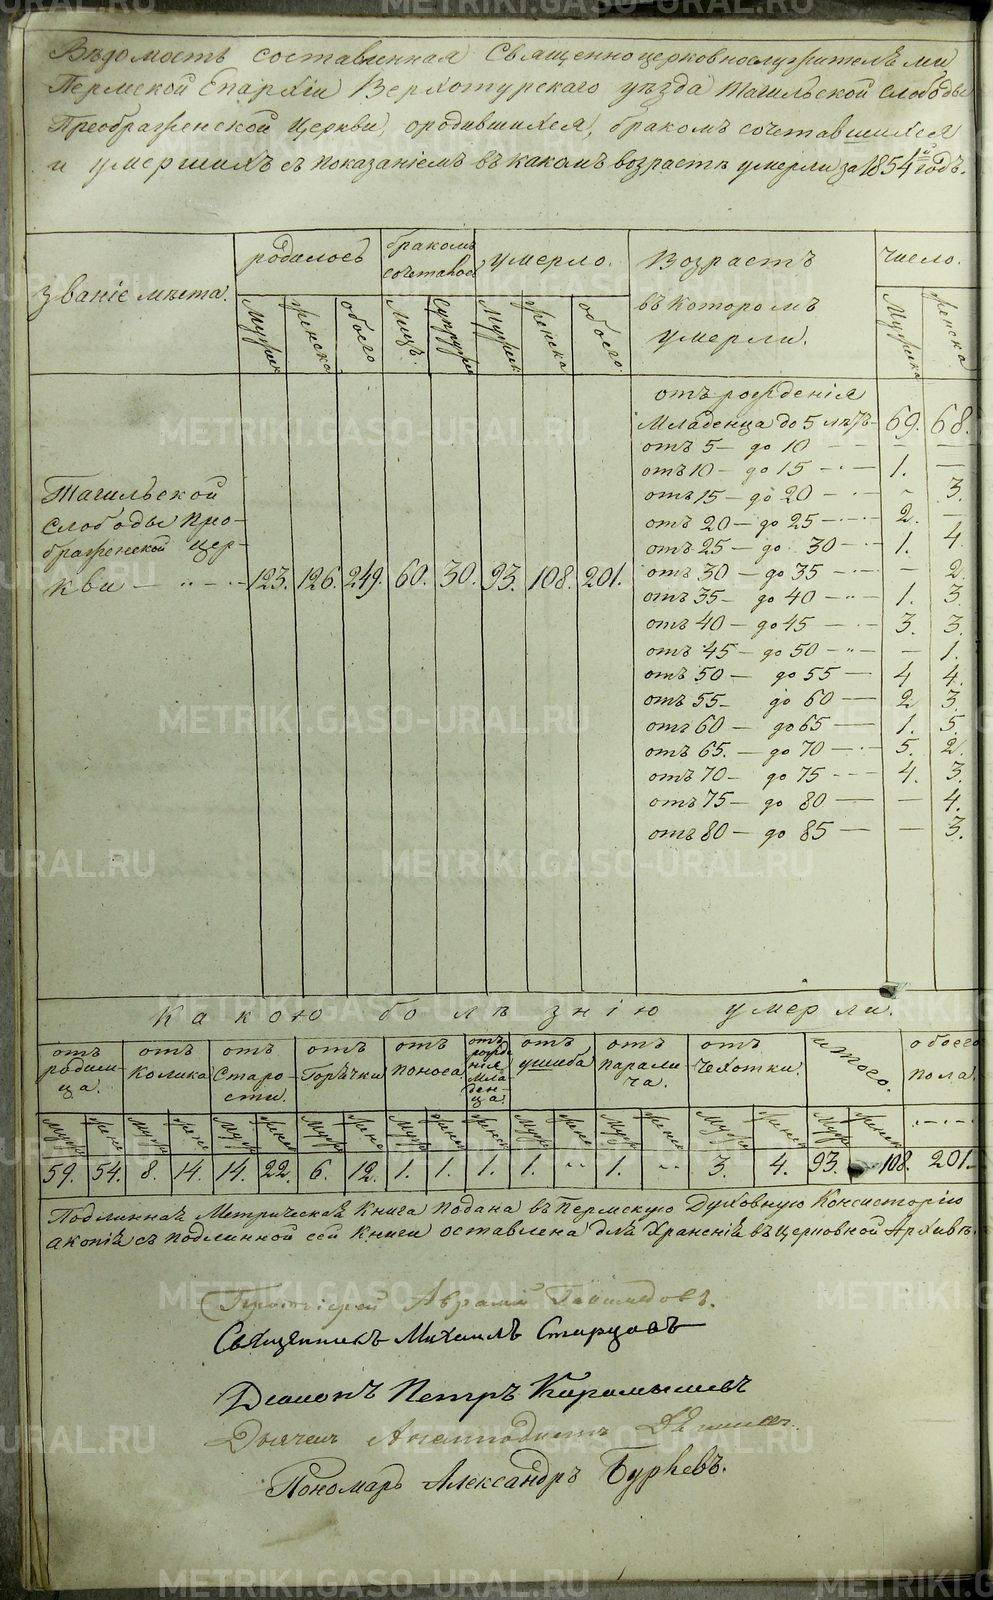 Вѣдомость составленная Священноцерковнослужителями
Пермской Епархіи Верхотурскаго уѣзда Тагильской слободы
Преображенской Церкви, ородившихся, бракомъ сочетавшихся
и умершихъ съ показаніемъ въ какомъ возрастѣ умерли за 1854й годъ.
званіе мѣста. родилось бракомъ сочеталось умерло. Возрастъ въ которомъ умерли. число.
Мужск женска обоего Лицъ. Супружн Мужск женска обоего. Мужска женска
отъ рожденія
Младенца до 5 лѣтъ 69. 68.
отъ 5 — до 10 — — —
отъ 10 — до 15 — 1. —
отъ 15 — до 20 — - 3.
отъ 20 — до 25 — 2. —
отъ 25 — до 30 — 1. 4.
отъ 30 — до 35 — — 2.
отъ 35 — до 40 — 1. 3.
отъ 40 — до 45 — 3. 3.
отъ 45 — до 50 — — 1.
отъ 50 — до 55 — 4 4.
отъ 55 — до 60 — 2 3.
отъ 60 — до 65 — 1. 5.
отъ 65. — до 70 — 5. 2.
отъ 70 — до 75 — 4. 3.
отъ 75 — до 80 — — 4.
отъ 80 — до 85 — — 3.
Тагильской
слободы Прео-
браженской цер-
кви — 123. 126. 249. 60. 30. 93. 108. 201.
Какою болѣзнію умерли.
отъ родим-ца. отъ Колика отъ Старо-сти. отъ Горячки отъ поноса. отъ рожде-нія Мла-ден-ца. отъ ушиба отъ парали-ча. отъ Чехотки. итого. обоего пола.
Муж Жен Муж Жен Муж Жен Муж Жен Муж Жен Женск Муж Жен Муж Женск Муж Женск Муж Женск
59. 54. 8. 14. 14. 22. 6. 12. 1. 1. 1. 1. .. 1. .. 3. 4. 93. 108. 201.
Подлинная Метрическая Книга подана въ Пермскую Духовную Консисторію
а копія съ подлинной сей книги оставлена для Храненія въ Церковной Архивѣ.
Протоіерей Аврамій
Священникъ Михаилъ Старцовъ
Діаконъ Петръ Карамышевъ
Дьячекъ
Пономарь Александръ
METRIKI.GASO-URAL.RU